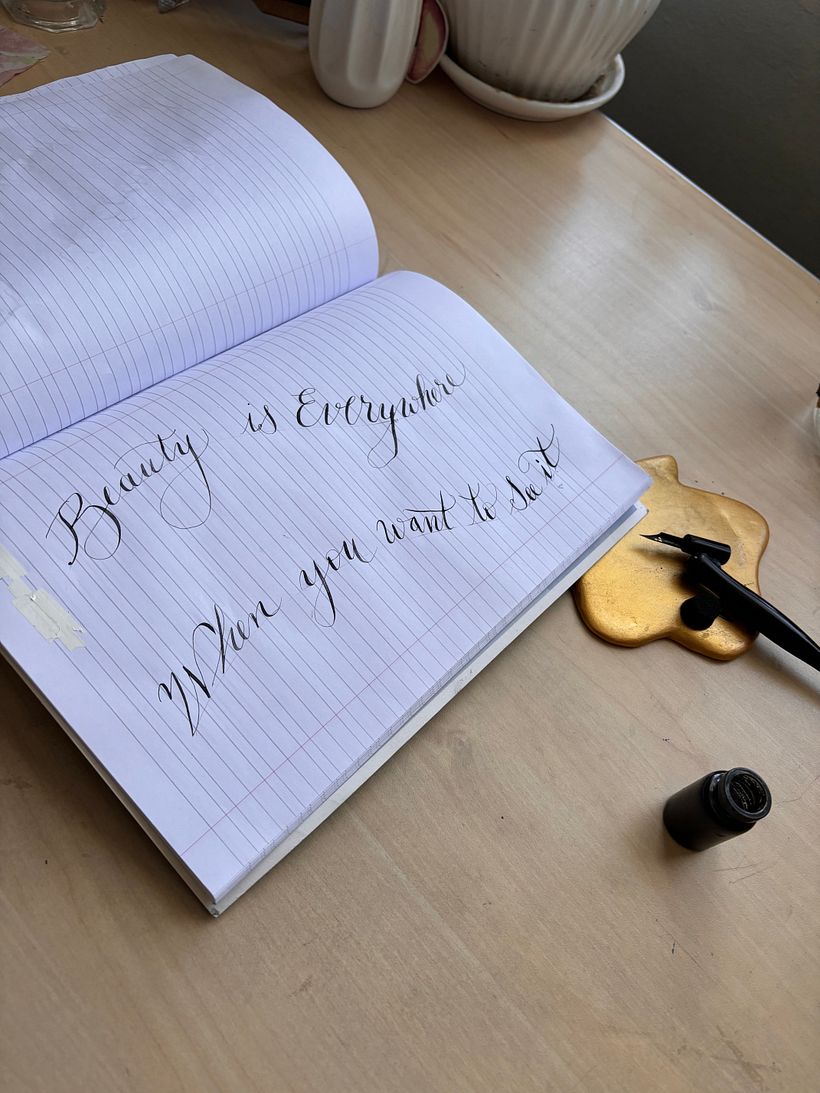 Beauty is Everywhere
When you want to see it